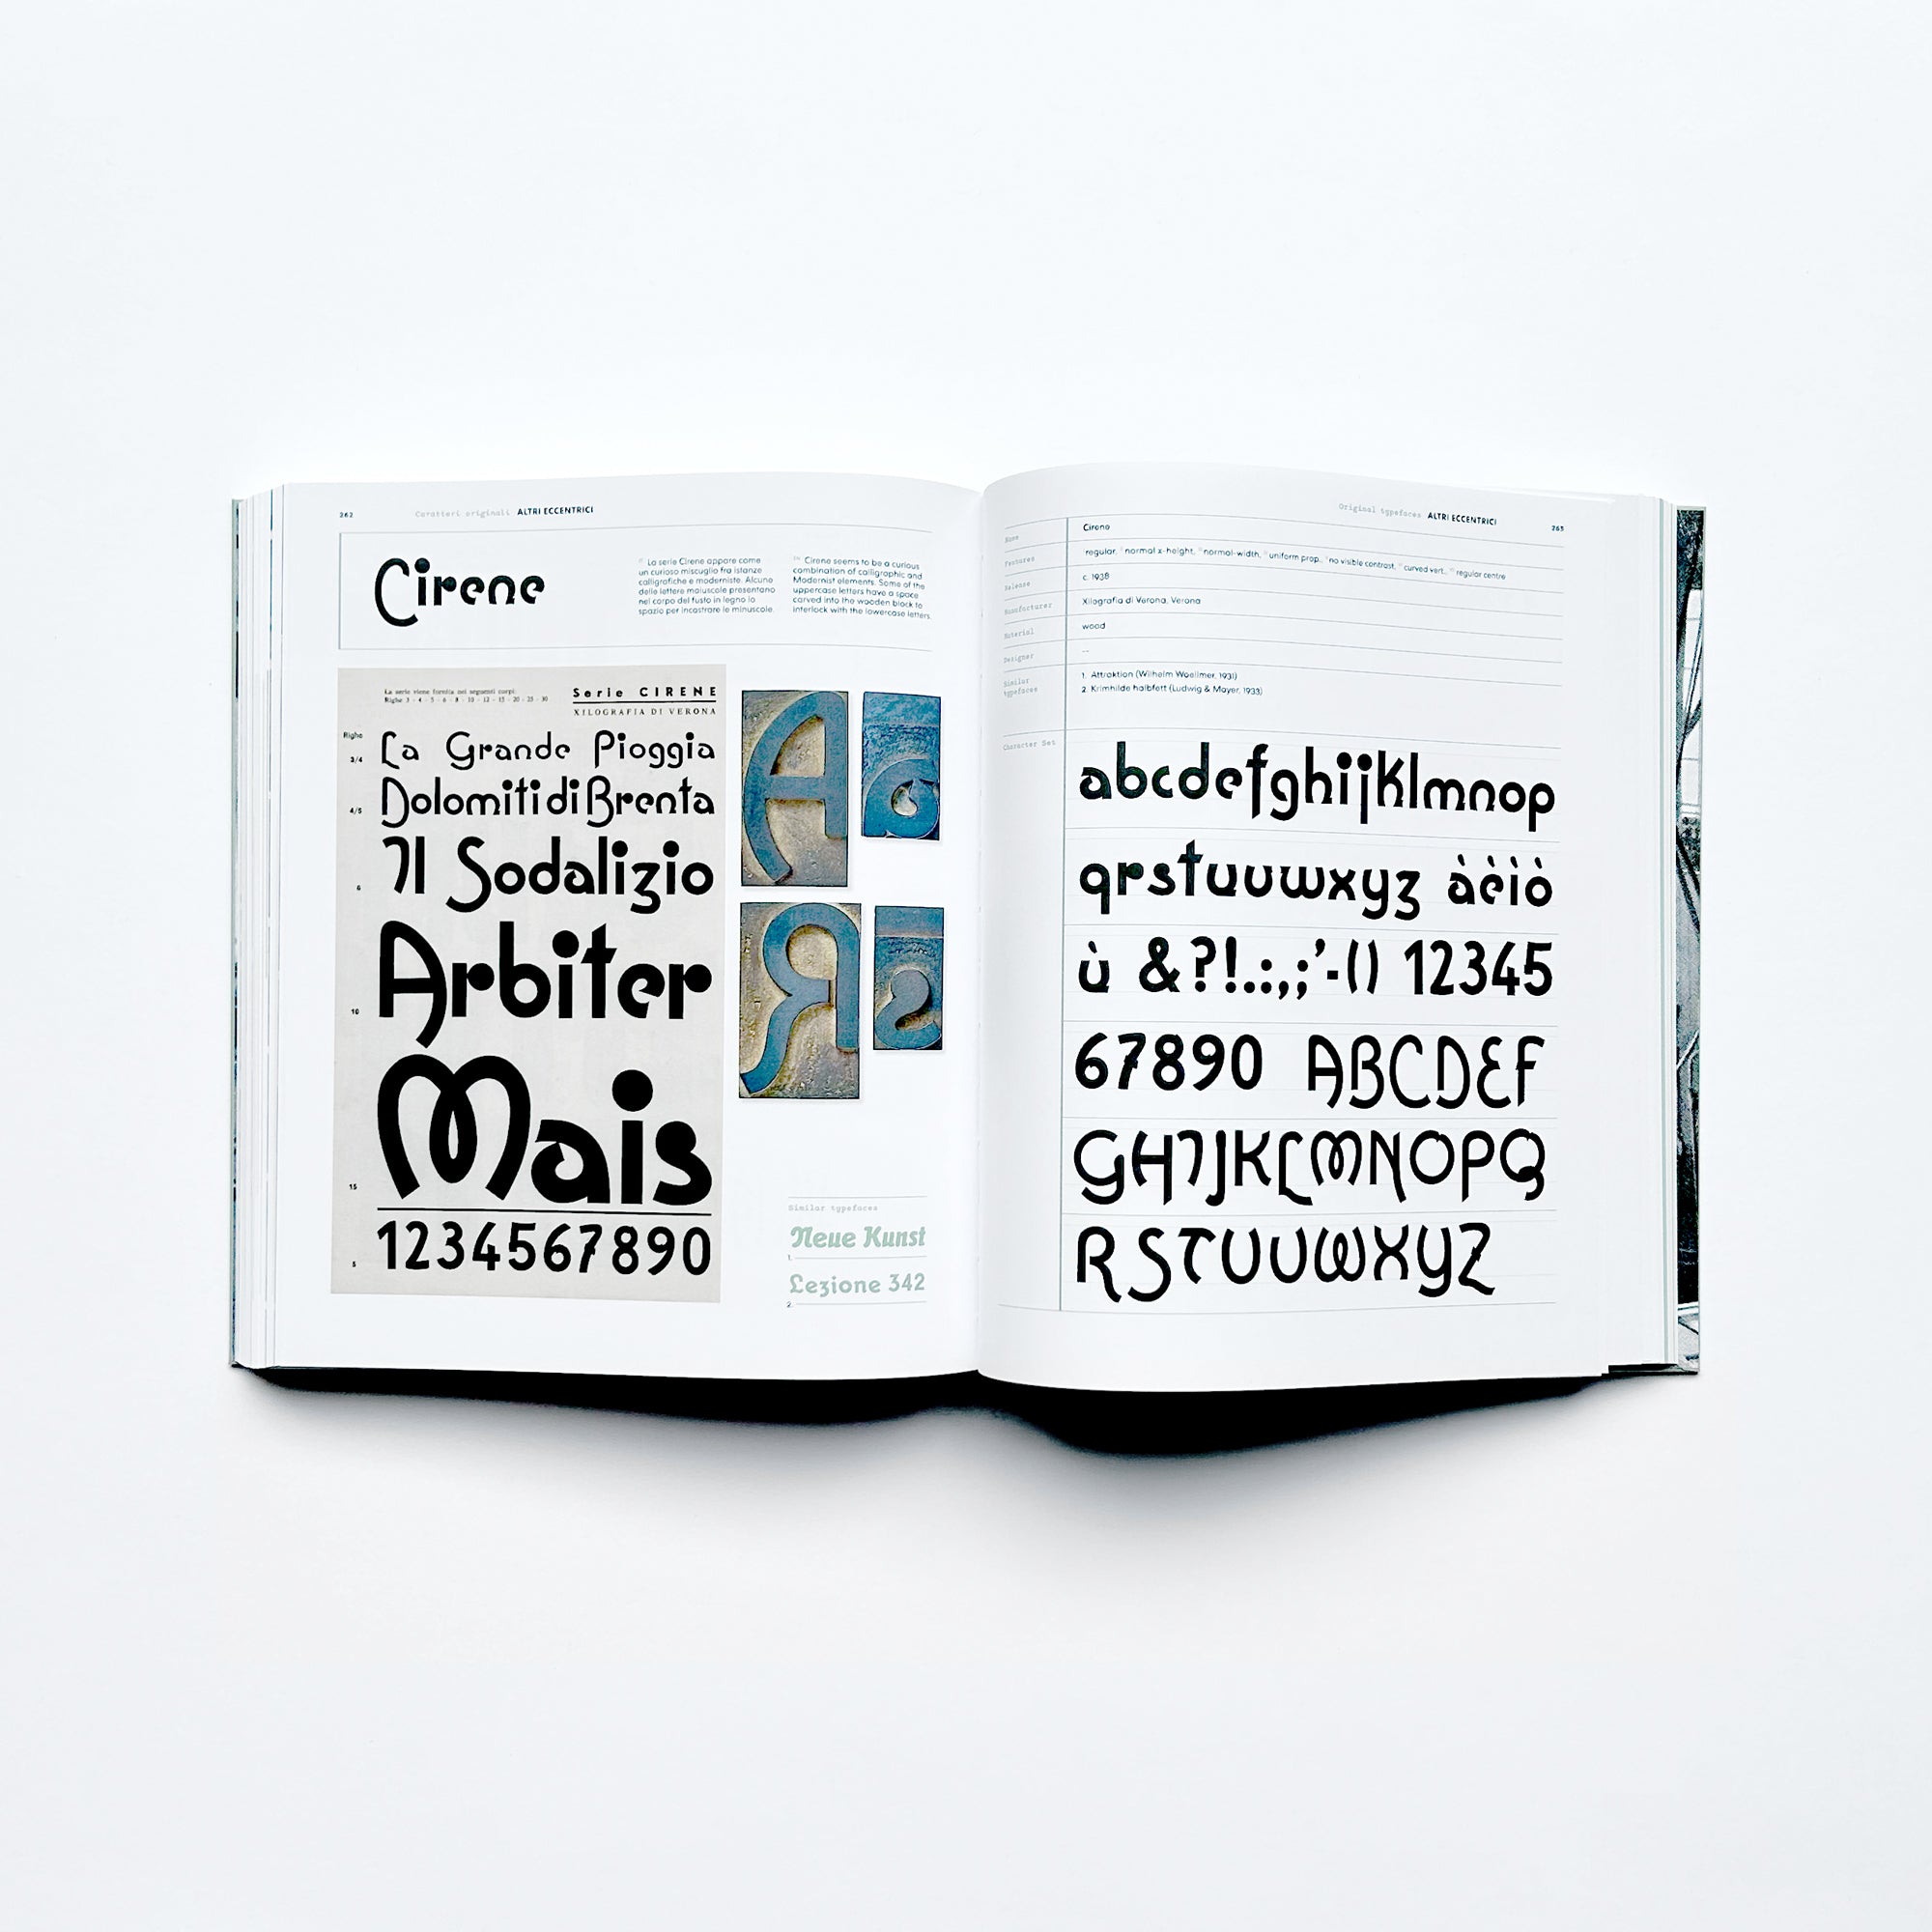 262 Caratteri originali ALTRI ECCENTRICI
Cirene
La serie Cirene appare come
un curioso miscuglio fra istanze
calligrafiche e moderniste. Alcune
delle lettere maiuscole presentano
nel corpo del fusto in legno lo
spazio per incastrare le minuscole.
Cirene seems to be a curious
combination of calligraphic and
Modernist elements. Some of the
uppercase letters have a space
carved into the wooden block to
interlock with the lowercase letters.
La serie viene fornita nei seguenti corpi:
Righe 3 - 4 - 5 - 6 - 8 - 10 - 12 - 15 - 20 - 25 - 30
Serie CIRENE
XILOGRAFIA DI VERONA
Righe
3/4 La Grande Pioggia
4/5 Dolomiti di Brenta
6 Il Sodalizio
10 Arbiter
15 Mais
5 1234567890
A a
R s
Similar typefaces
Neue Kunst
1.
Lezione 342
2.
Original typefaces ALTRI ECCENTRICI 263
Name Cirene
Features regular, normal x-height, normal-width, uniform prop., no visible contrast, curved vert., regular centre
Release c. 1938
Manufacturer Xilografia di Verona, Verona
Material wood
Designer --
Similar typefaces
1. Attraktion (Wilhelm Woellmer, 1931)
2. Krimhilde halbfett (Ludwig & Mayer, 1933)
Character Set
abcdefghijklmnop
qrstuvwxyz àèìò
ù &?!.:,;'-() 12345
67890 ABCDEF
GHIJKLMNOPQ
RSTUVWXYZ